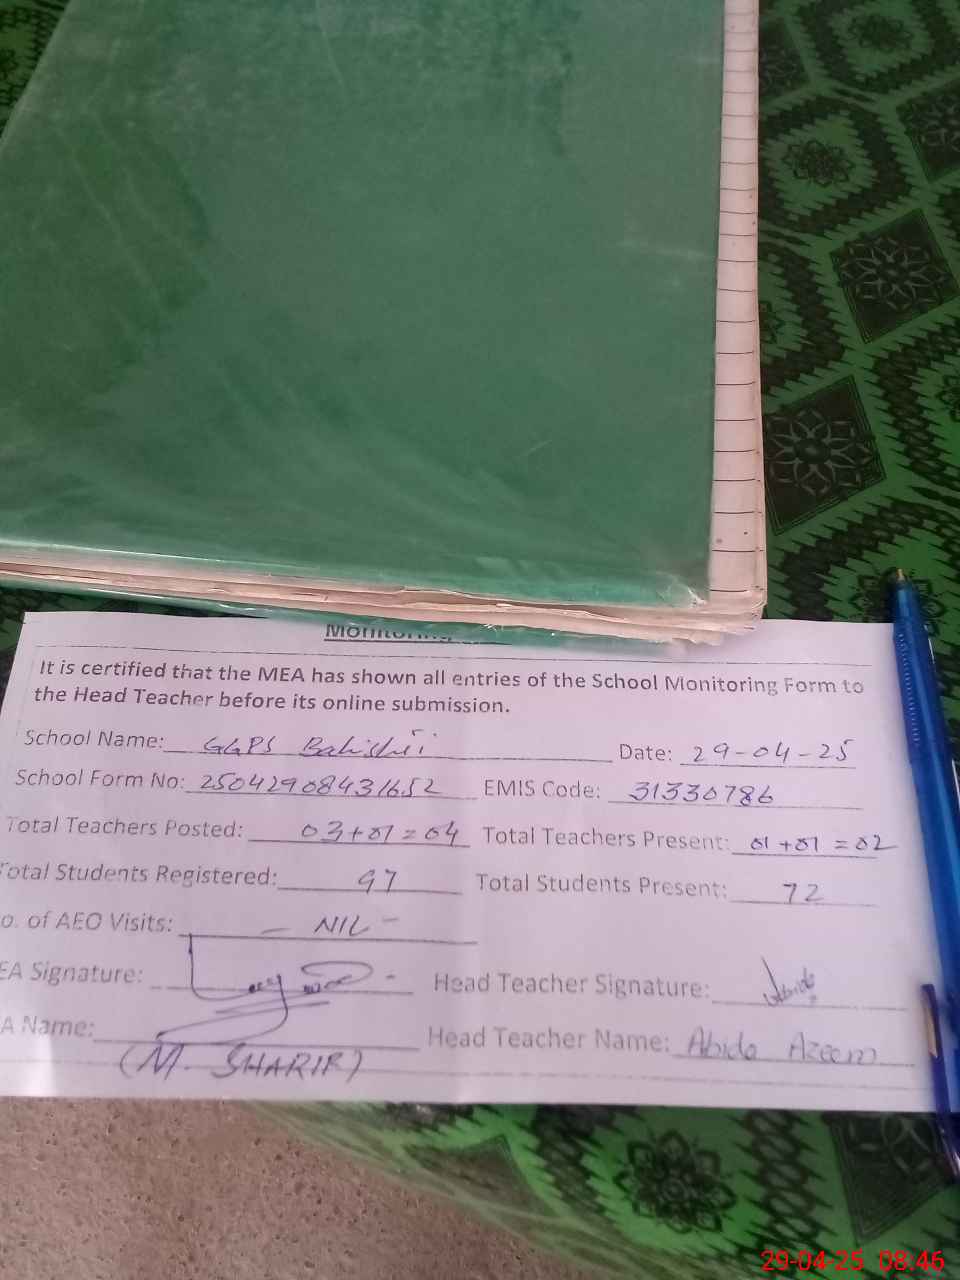 Monitoring
It is certified that the MEA has shown all entries of the School Monitoring Form to
the Head Teacher before its online submission.
School Name: GGPS Date: 29-04-25
School Form No: 25042908431652 EMIS Code: 31330786
Total Teachers Posted: 03+01=04 Total Teachers Present: 01+01=02
Total Students Registered: 97 Total Students Present: 72
o. of AEO Visits: - NIL -
EA Signature: Head Teacher Signature: Abida
A Name: Head Teacher Name: Abida Azeem
(M. SHARIF)
29-04-25 08:46